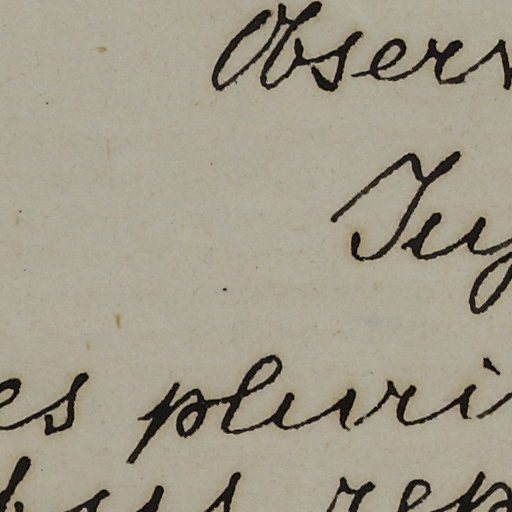 Observ
Juy
es pluri
bus rep